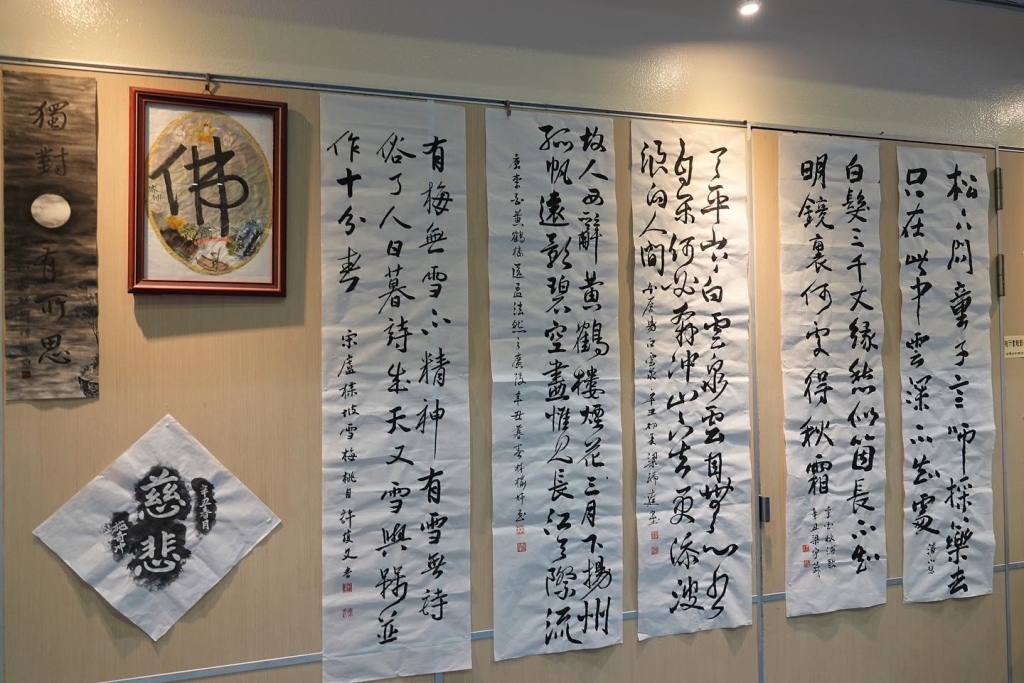 獨對
有所思
佛
慈悲
有梅無雪不精神有雪無詩
俗了人日暮詩成天又雪與梅並
作十分春 宋盧梅坡雪梅
故人西辭黃鶴樓煙花三月下揚州
孤帆遠影碧空盡惟見長江天際流
唐李白黃鶴樓送孟浩然之廣陵辛丑暮春
天平山上白雲泉雲自無心水
自閒何必奔沖山下去更添波
浪向人間 白居易白雲泉 辛丑初夏
白髮三千丈緣愁似箇長不知
明鏡裏何處得秋霜
李白秋浦歌
辛丑
松下問童子言師採藥去
只在此中雲深不知處